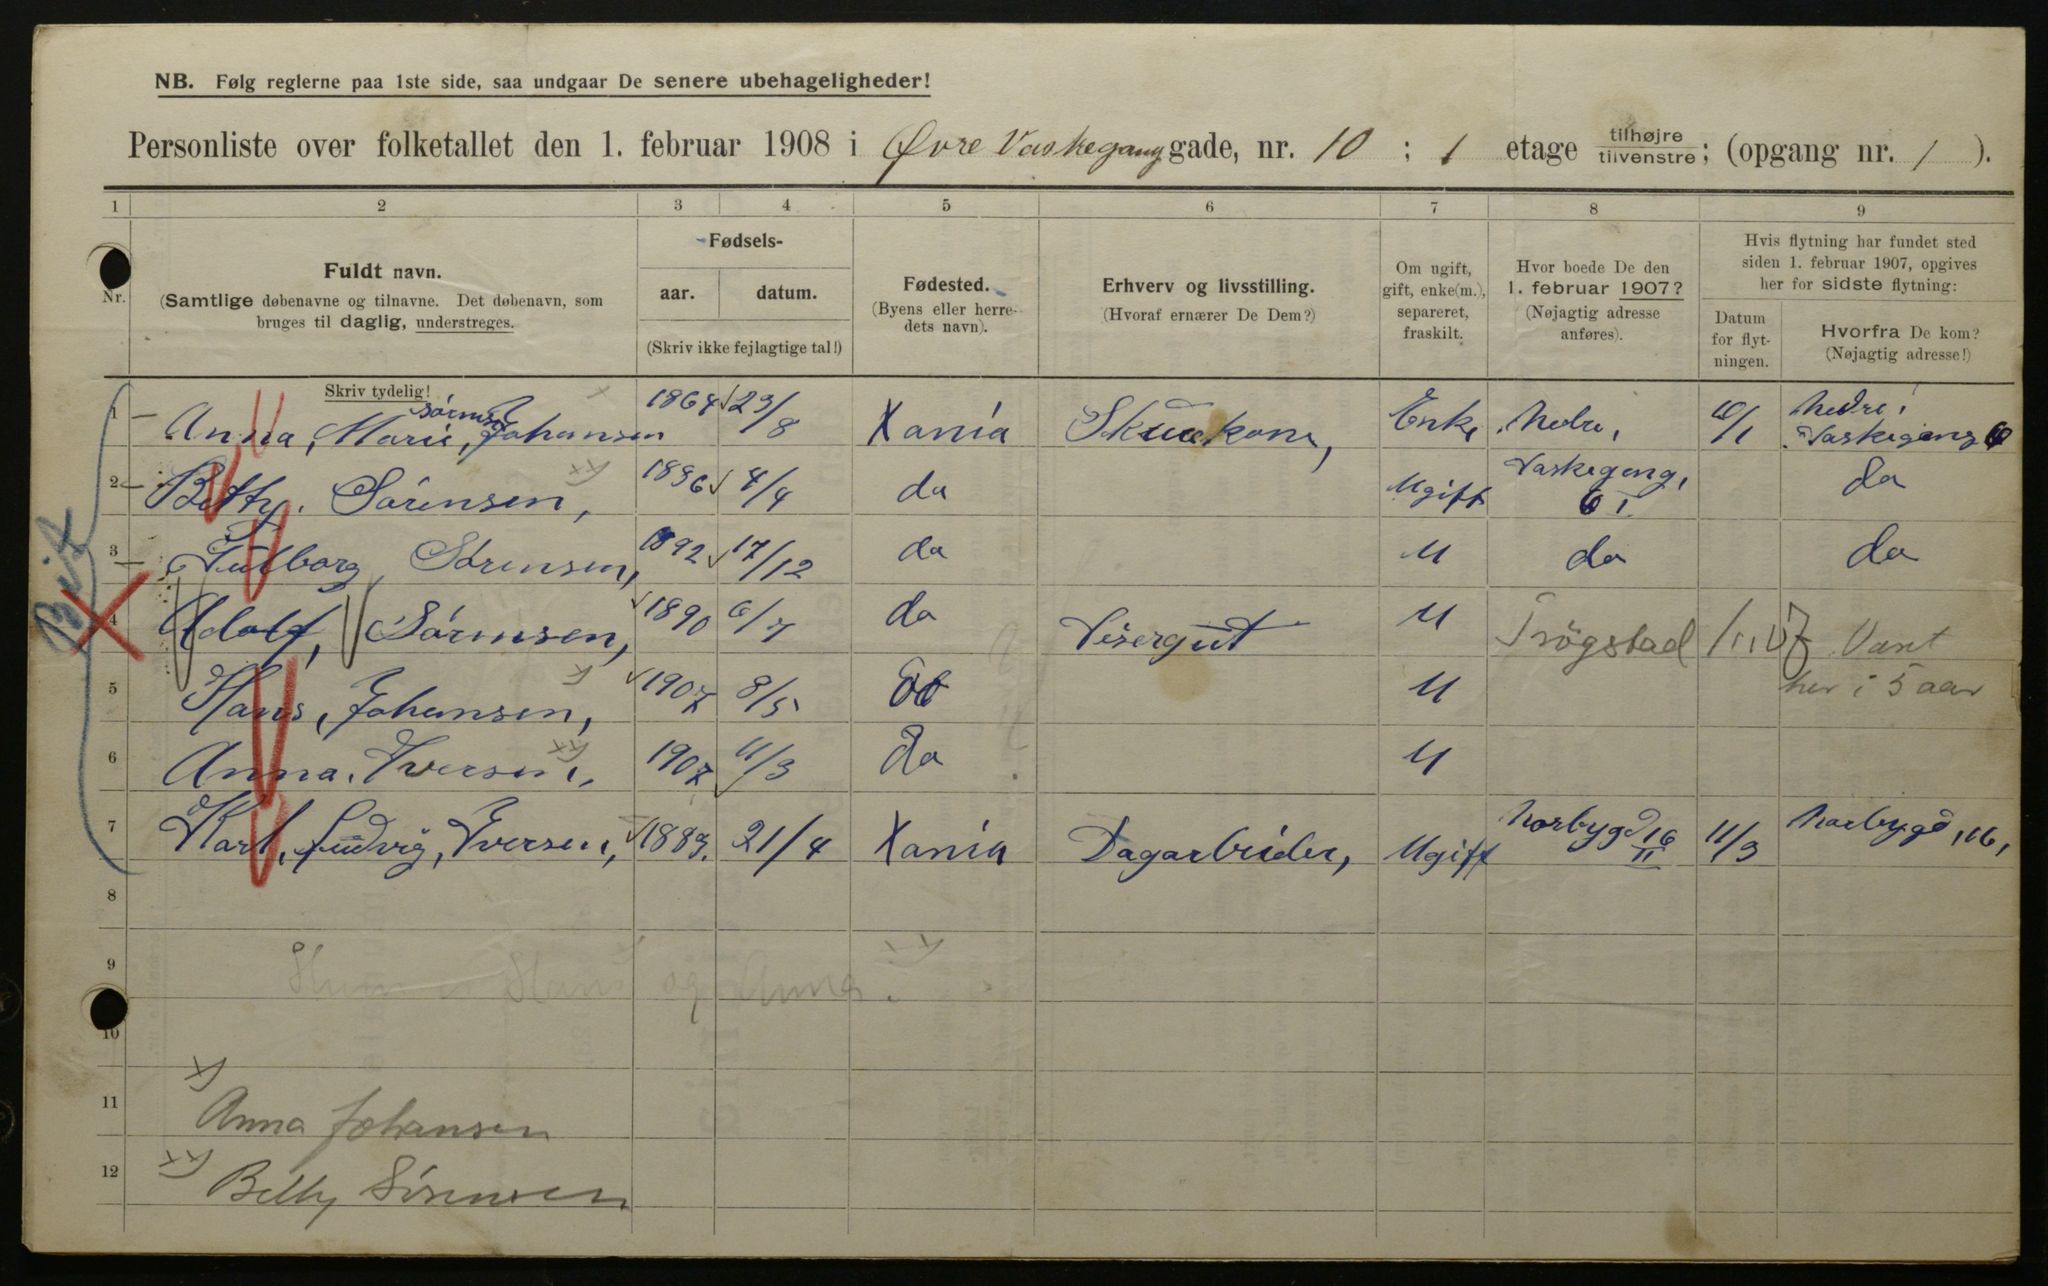 NB. Følg reglerne paa 1ste side, saa undgaar De senere ubehageligheder!
Personliste over folketallet den 1. februar 1908 i Øvre Vaskegang gade, nr. 10 ; 1 etage tilhøjre tilvenstre; (opgang nr. 1 ).
1 2 3 4 5 6 7 8 9
Nr.
Fuldt navn.
(Samtlige døbenavne og tilnavne. Det døbenavn, som
bruges til daglig, understreges.
Skriv tydelig!
Fødsels-
aar. datum.
(Skriv ikke fejlagtige tal!)
Fødested.
(Byens eller herre-
dets navn).
Erhverv og livsstilling.
(Hvoraf ernærer De Dem?)
Om ugift,
gift, enke(m.),
separeret,
fraskilt.
Hvor boede De den
1. februar 1907?
(Nøjagtig adresse
anføres).
Hvis flytning har fundet sted
siden 1. februar 1907, opgives
her for sidste flytning:
Datum
for flyt-
ningen.
Hvorfra De kom?
(Nøjagtig adresse!)
1 Anna, Marie, Johansen 1864 23/8 Xania Enke Nedre, Nedre
Vaskegang
2 Betty Sørensen, 1896 4/4 da Ugift Vaskegang, 6 I da
3 Sørensen, 1892 17/12 da U da da
4 Adolf, Sørensen, 1890 6/7 da Visergut U Trøgstad Vært
her i 5 aar
5 Hans, Johansen, 1907 8/5 U
6 Anna. Iversen, 1907 11/3 da U
7 Karl, Ludvig, Iversen, 1883. 21/4 Xania Dagarbeider, Ugift Norbygd 16 II 11/3 Norbygd, 16,
8
9 Hans og Anna. xx)
10
x)
11 Anna Johansen
12 xx) Betty Sørensen